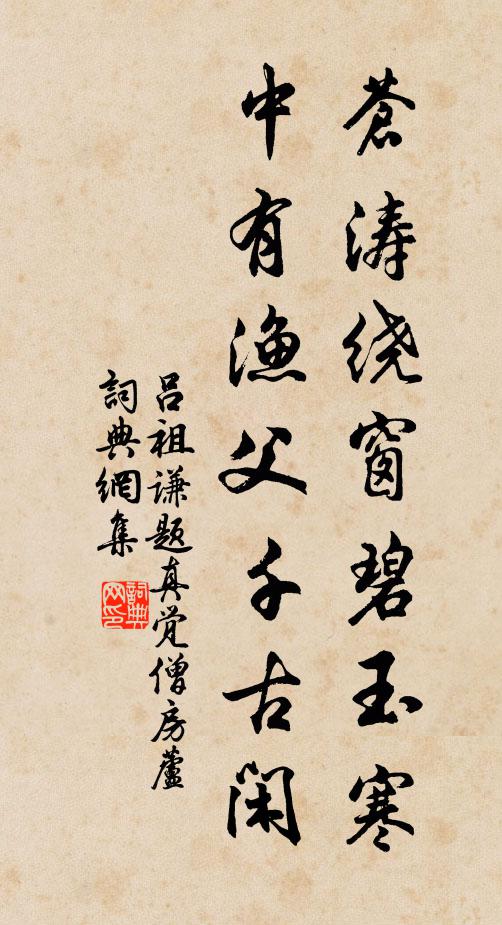 蒼涛绕窗碧玉寒
中有漁父千古闲
吕祖谦题真觉僧房蘆
詞典網集
詞典网印